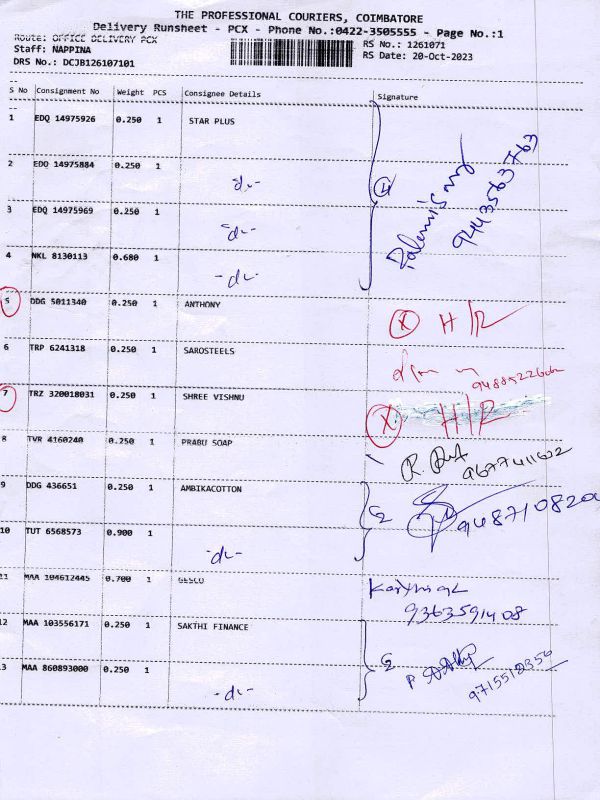 THE PROFESSIONAL COURIERS, COIMBATORE
Delivery Runsheet - PCX - Phone No.:0422-3505555 - Page No.:1
Route: OFFICE DELIVERY PCX
RS No.: 1261071
Staff: NAPPINA
RS Date: 20-Oct-2023
DRS No.: DCJB126107101
S No Consignment No Weight PCS Consignee Details Signature
1 EDQ 14975926 0.250 1 STAR PLUS
2 EDQ 14975884 0.250 1 -do-
3 EDQ 14975969 0.250 1 -do-
4 NKL 8130113 0.680 1 -do-
4
9443563763
5 DDG 5011340 0.250 1 ANTHONY X H/R
6 TRP 6241318 0.250 1 SAROSTEELS
7 TRZ 320018031 0.250 1 SHREE VISHNU X H/R
8 TVR 4160240 0.250 1 PRABU SOAP
9677411622
9 DDG 436651 0.250 1 AMBIKACOTTON
2 948710820
10 TUT 6568573 0.900 1 -do-
11 MAA 104612445 0.700 1 GESCO
9363591408
12 MAA 103556171 0.250 1 SAKTHI FINANCE
2 9715518356
13 MAA 860893000 0.250 1 -do-